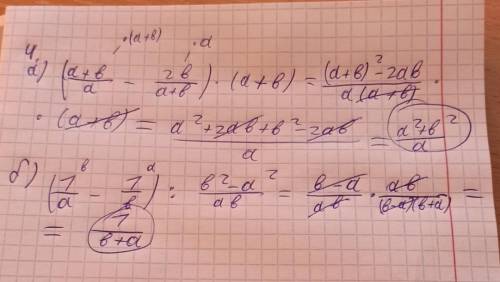 ·(a+b) ·a
4.
а) ((a+b)/a - 2b/(a+b)) · (a+b) = ((a+b)² - 2ab)/(a(a+b)) ·
· (a+b) = (a² + 2ab + b² - 2ab)/a = (a² + b²)/a
б) (1/a ᵇ - 1/b ᵃ) : (b² - a²)/(ab) = (b - a)/(ab) · (ab)/((b-a)(b+a)) =
= 1/(b+a)